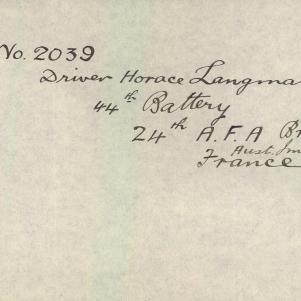 No. 2039
Driver Horace Langma
44th Battery
24th A.F.A Br
Aust. Im
France